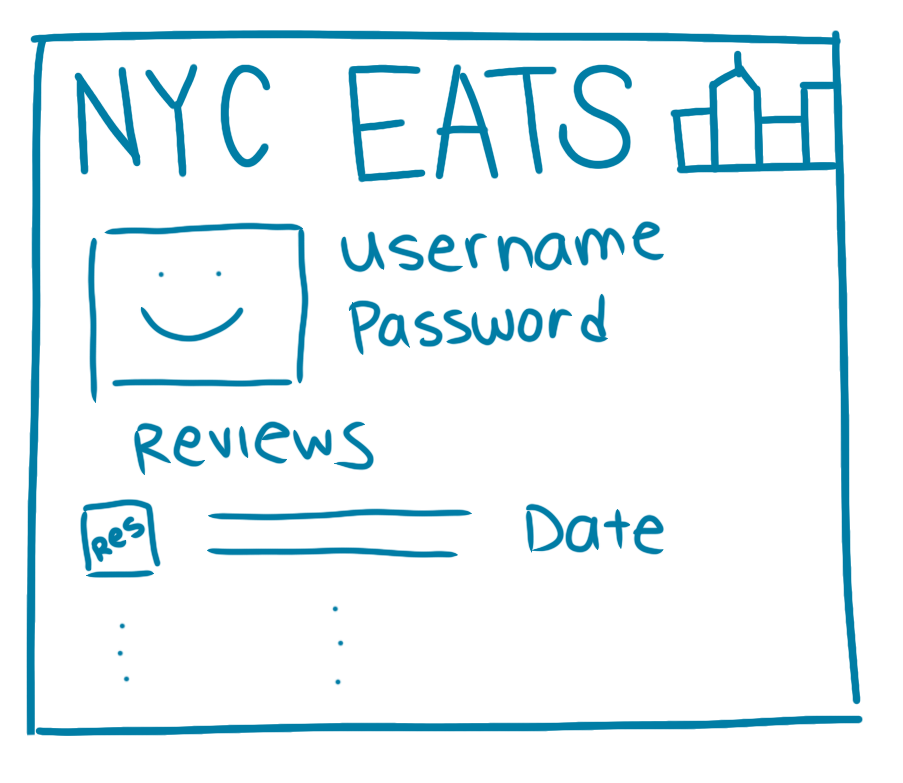 NYC EATS
username
Password
Reviews
Res Date